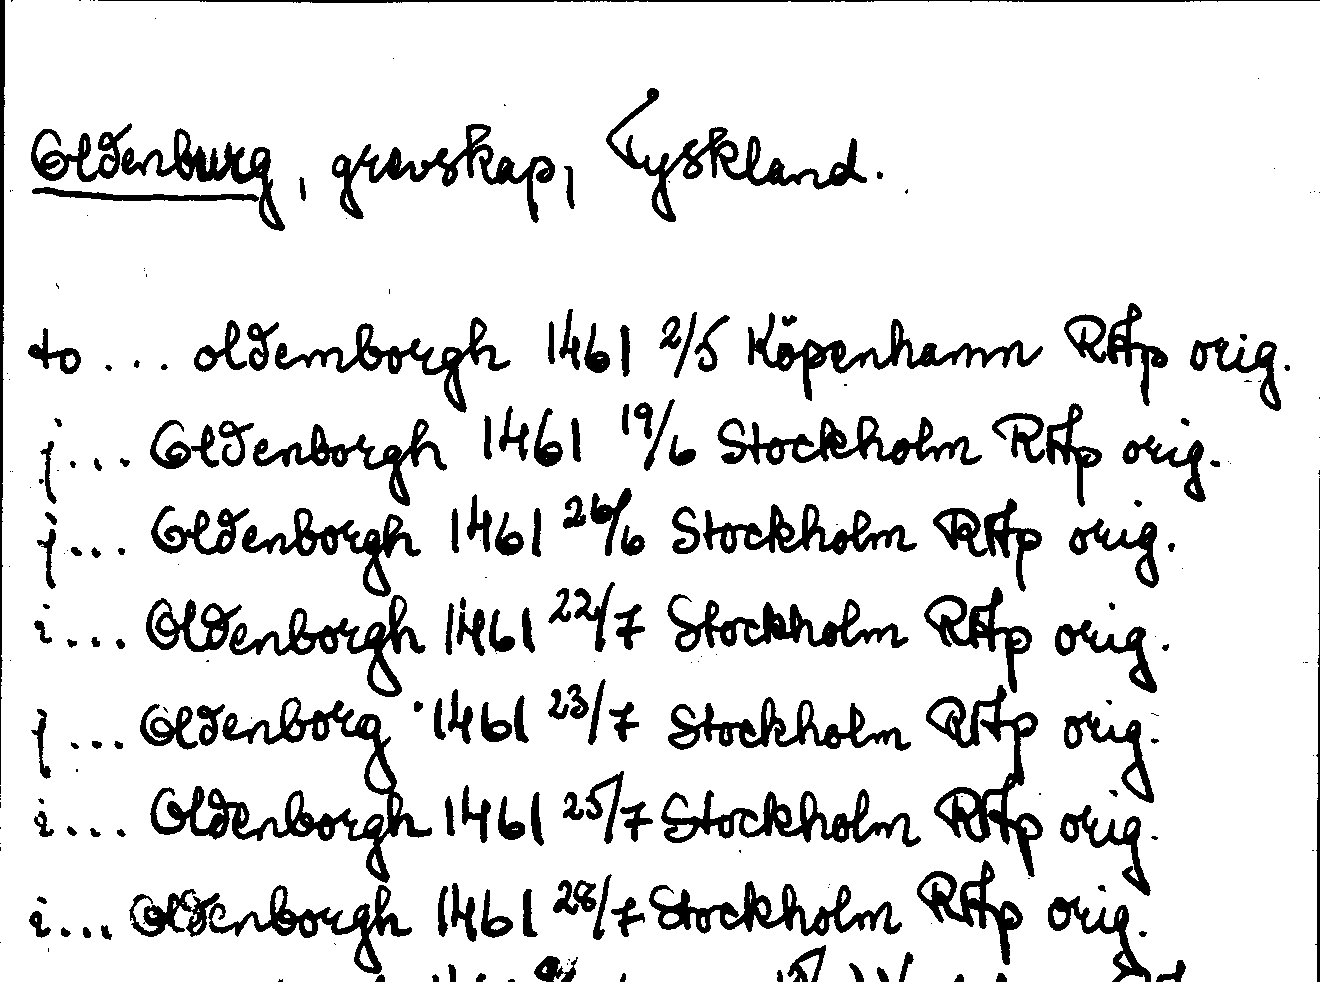 Oldenburg, grevskap, Tyskland.
to ... oldemborgh 1461 2/5 Köpenhamn RAp orig.
j ... Oldenborgh 1461 19/6 Stockholm RAp orig.
j ... Oldenborgh 1461 26/6 Stockholm RAp orig.
i ... Oldenborgh 1461 22/7 Stockholm RAp orig.
j ... Oldenborg 1461 23/7 Stockholm RAp orig.
i ... Oldenborgh 1461 25/7 Stockholm RAp orig.
i ... Oldenborgh 1461 28/7 Stockholm RAp orig.